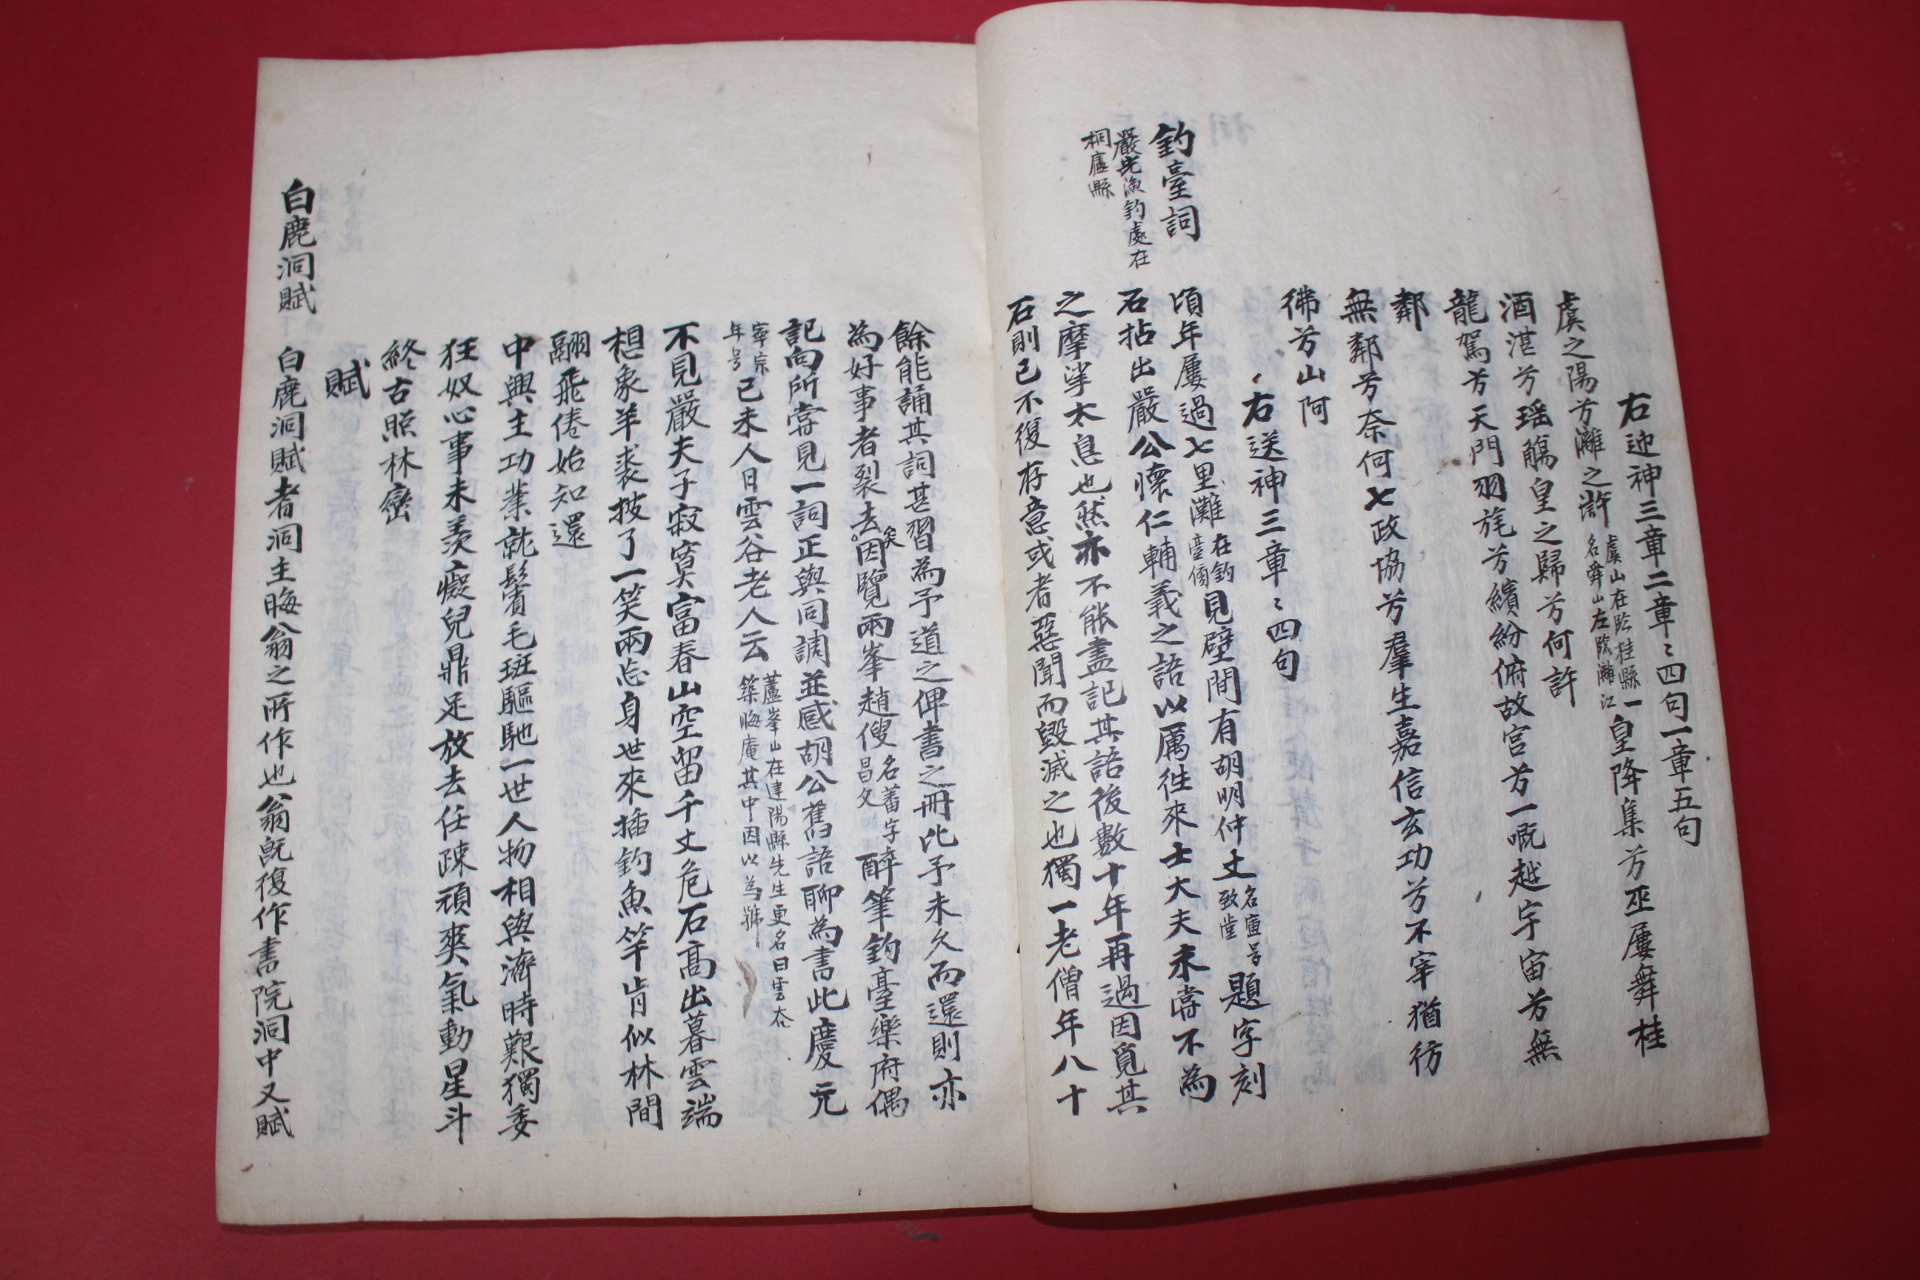 右迎神三章二章〻四句一章五句
虞之陽兮灕之滸虞山在臨桂縣一名舜山左臨灕江皇降集兮巫屢舞桂
酒湛兮瑶觴皇之歸兮何許
龍駕兮天門羽旄兮繽紛俯故宮兮一嘅越宇宙兮無
鄰
無鄰兮奈何七政協兮羣生嘉信玄功兮不宰猶彷
彿兮山阿
右送神三章〻四句
釣臺詞
嚴光漁釣處在
桐廬縣
頃年屢過七里灘在釣臺傍見壁間有胡明仲丈名寅号致堂題字刻
石拈出嚴公懷仁輔義之語以厲徃來士大夫未嘗不為
之摩挲太息也然亦不能盡記其語後數十年再過因覓其
石則已不復存意或者惡聞而毀滅之也獨一老僧年八十
餘能誦其詞甚習為予道之俾書之冊比予未久而還則亦
為好事者裂去矣因覽兩峯趙傁名蕃字昌父醉筆釣臺樂府偶
記向所嘗見一詞正與同調並感胡公舊語聊為書此慶元
寧宗年号己未人日雲谷老人云蘆峯山在建陽縣先生更名曰雲谷築晦庵其中因以為號
不見嚴夫子寂寞富春山空留千丈危石高出暮雲端
想象羊裘披了一笑兩忘身世來插釣魚竿肯似林間
翮飛倦始知還
中興主功業就鬂毛斑驅馳一世人物相與濟時艱獨委
狂奴心事未羨癡兒鼎足放去任疎頑爽氣動星斗
終古照林巒
賦
白鹿洞賦　白鹿洞賦者洞主晦翁之所作也翁既復作書院洞中又賦